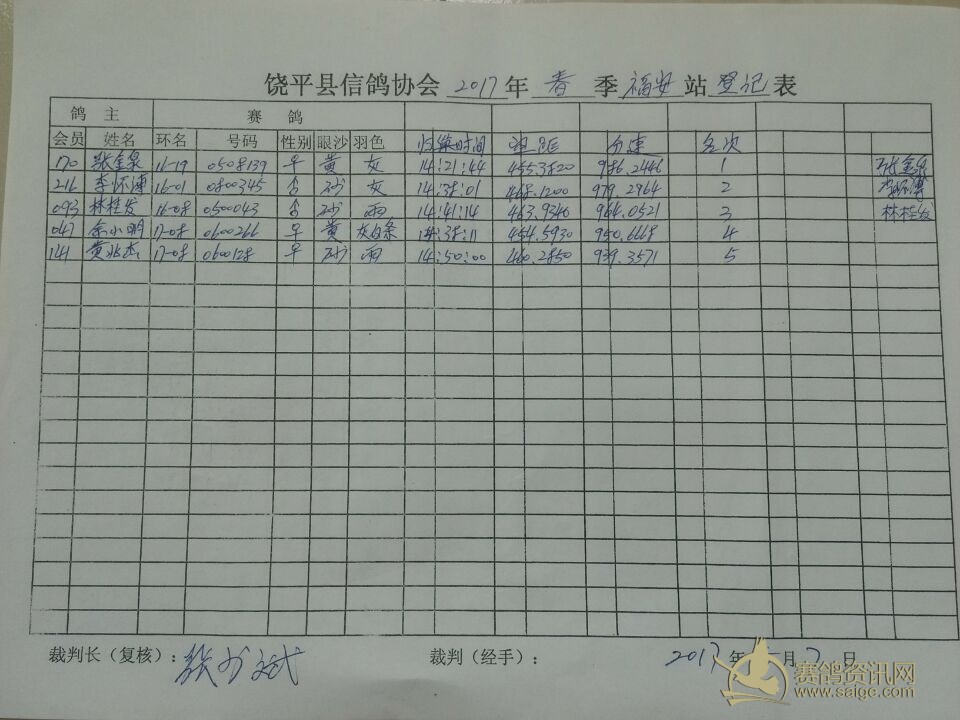 饶平县信鸽协会 2017 年 春 季 福安 站 登记 表
鸽 主 赛 鸽
会员 姓名 环名 号码 性别 眼沙 羽色 归巢时间 空距 分速 名次
170 张金泉 16-19 0508139 黄 14:21:44 455.3820 986.2446 1 张金泉
216 16-01 0800345 砂 14:38:01 468.1200 979.2964 2
093 林桂发 16-08 0500043 砂 雨 14:41:14 463.9346 964.0521 3 林桂发
047 余小明 17-08 0600266 黄 灰白条 14:38:11 454.5930 950.6668 4
141 黄兆杰 17-08 0600128 砂 雨 14:50:00 460.2850 939.3571 5
裁判长（复核）： 裁判（经手）： 2017 年 月 7 日
赛鸽资讯网
www.saigc.com